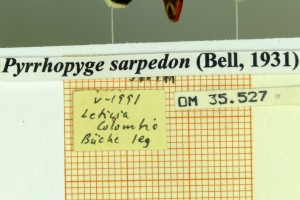 Pyrrhopyge sarpedon (Bell, 1931)
V-1991
Leticia
Colombia
Büche leg
OM 35.527